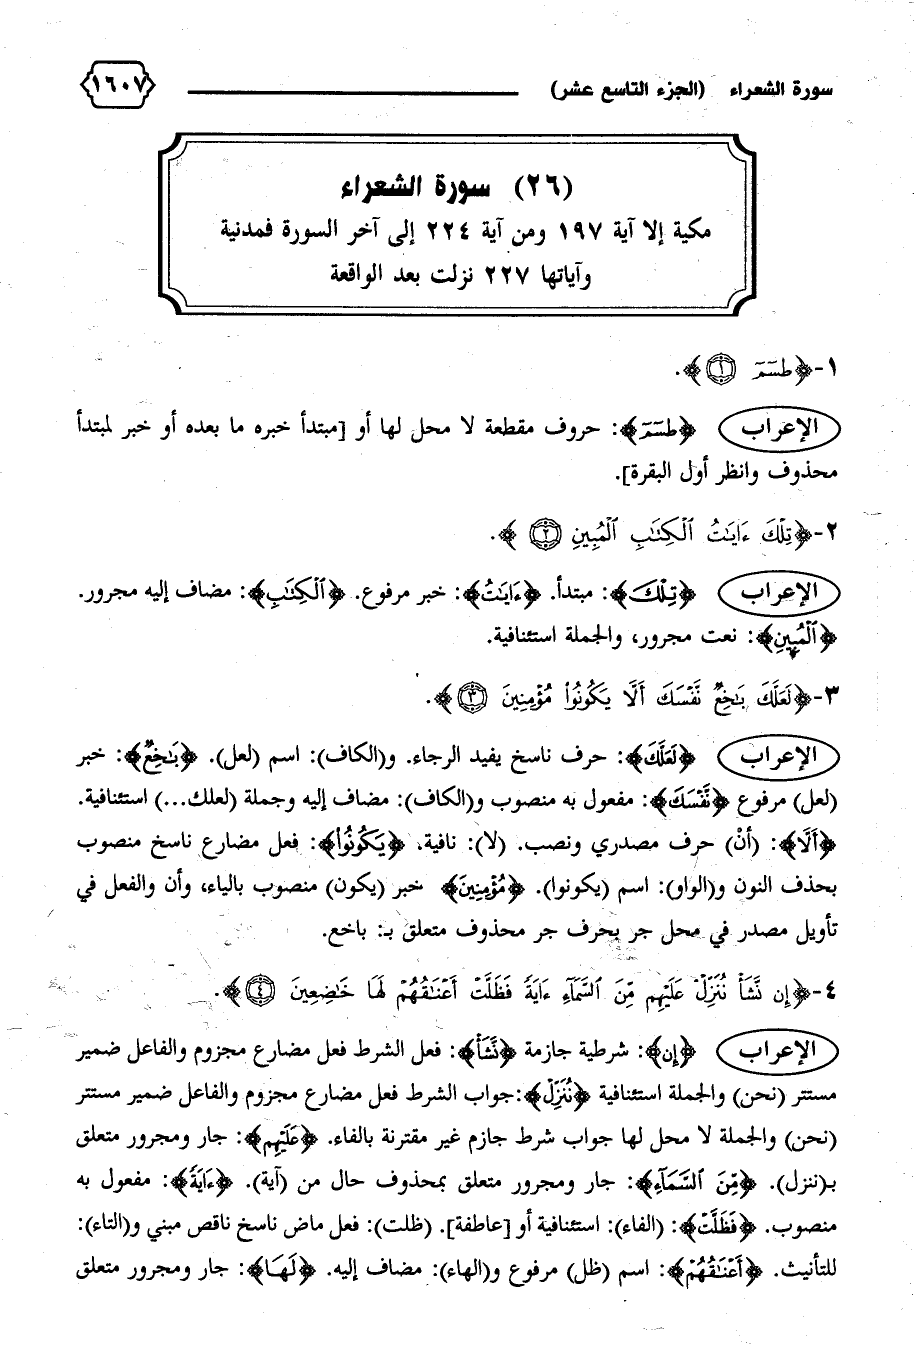 سورة الشعراء (الجزء التاسع عشر) ١٦٠٧
(٢٦) سورة الشعراء
مكية إلا آية ١٩٧ ومن آية ٢٢٤ إلى آخر السورة فمدنية
وآياتها ٢٢٧ نزلت بعد الواقعة
١-﴿طسٓمٓ ١﴾.
الإعراب ﴿طسٓمٓ﴾: حروف مقطعة لا محل لها أو [مبتدأ خبره ما بعده أو خبر لمبتدأ
محذوف وانظر أول البقرة].
٢-﴿تِلْكَ ءَايَٰتُ ٱلْكِتَٰبِ ٱلْمُبِينِ ٢﴾.
الإعراب ﴿تِلْكَ﴾: مبتدأ. ﴿ءَايَٰتُ﴾: خبر مرفوع. ﴿ٱلْكِتَٰبِ﴾: مضاف إليه مجرور.
﴿ٱلْمُبِينِ﴾: نعت مجرور، والجملة استئنافية.
٣-﴿لَعَلَّكَ بَٰخِعٌ نَّفْسَكَ أَلَّا يَكُونُوا۟ مُؤْمِنِينَ ٣﴾.
الإعراب ﴿لَعَلَّكَ﴾: حرف ناسخ يفيد الرجاء. و(الكاف): اسم (لعل). ﴿بَٰخِعٌ﴾: خبر
(لعل) مرفوع ﴿نَّفْسَكَ﴾: مفعول به منصوب و(الكاف): مضاف إليه وجملة (لعلك...) استئنافية.
﴿أَلَّا﴾: (أنْ) حرف مصدري ونصب. (لا): نافية، ﴿يَكُونُوا۟﴾: فعل مضارع ناسخ منصوب
بحذف النون و(الواو): اسم (يكونوا). ﴿مُؤْمِنِينَ﴾ خبر (يكون) منصوب بالياء، وأن والفعل في
تأويل مصدر في محل جر بحرف جر محذوف متعلق بـ: باخع.
٤-﴿إِن نَّشَأْ نُنَزِّلْ عَلَيْهِم مِّنَ ٱلسَّمَآءِ ءَايَةً فَظَلَّتْ أَعْنَٰقُهُمْ لَهَا خَٰضِعِينَ ٤﴾.
الإعراب ﴿إِن﴾: شرطية جازمة ﴿نَّشَأْ﴾: فعل الشرط فعل مضارع مجزوم والفاعل ضمير
مستتر (نحن) والجملة استئنافية ﴿نُنَزِّلْ﴾:جواب الشرط فعل مضارع مجزوم والفاعل ضمير مستتر
(نحن) والجملة لا محل لها جواب شرط جازم غير مقترنة بالفاء. ﴿عَلَيْهِم﴾: جار ومجرور متعلق
بـ(ننزل). ﴿مِّنَ ٱلسَّمَآءِ﴾: جار ومجرور متعلق بمحذوف حال من (آية). ﴿ءَايَةً﴾: مفعول به
منصوب. ﴿فَظَلَّتْ﴾: (الفاء): استئنافية أو [عاطفة]. (ظلت): فعل ماض ناسخ ناقص مبني و(التاء):
للتأنيث. ﴿أَعْنَٰقُهُمْ﴾: اسم (ظل) مرفوع و(الهاء): مضاف إليه. ﴿لَهَا﴾: جار ومجرور متعلق